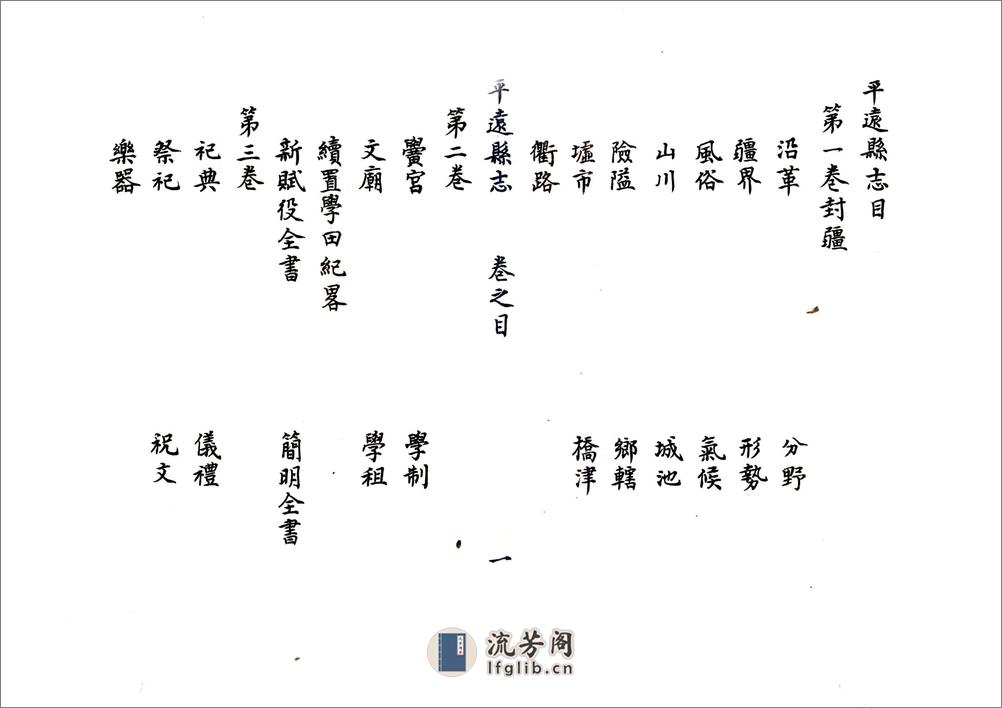 平遠縣志目
第一卷封疆
沿革　分野
疆界　形勢
風俗　氣候
山川　城池
險隘　鄉轄
墟市　橋津
衢路
平遠縣志　卷之目　一
第二卷
黌宮　學制
文廟　學租
續置學田紀畧
新賦役全書　簡明全書
第三卷
祀典　儀禮
祭祀　祝文
樂器
流芳阁
lfglib.cn